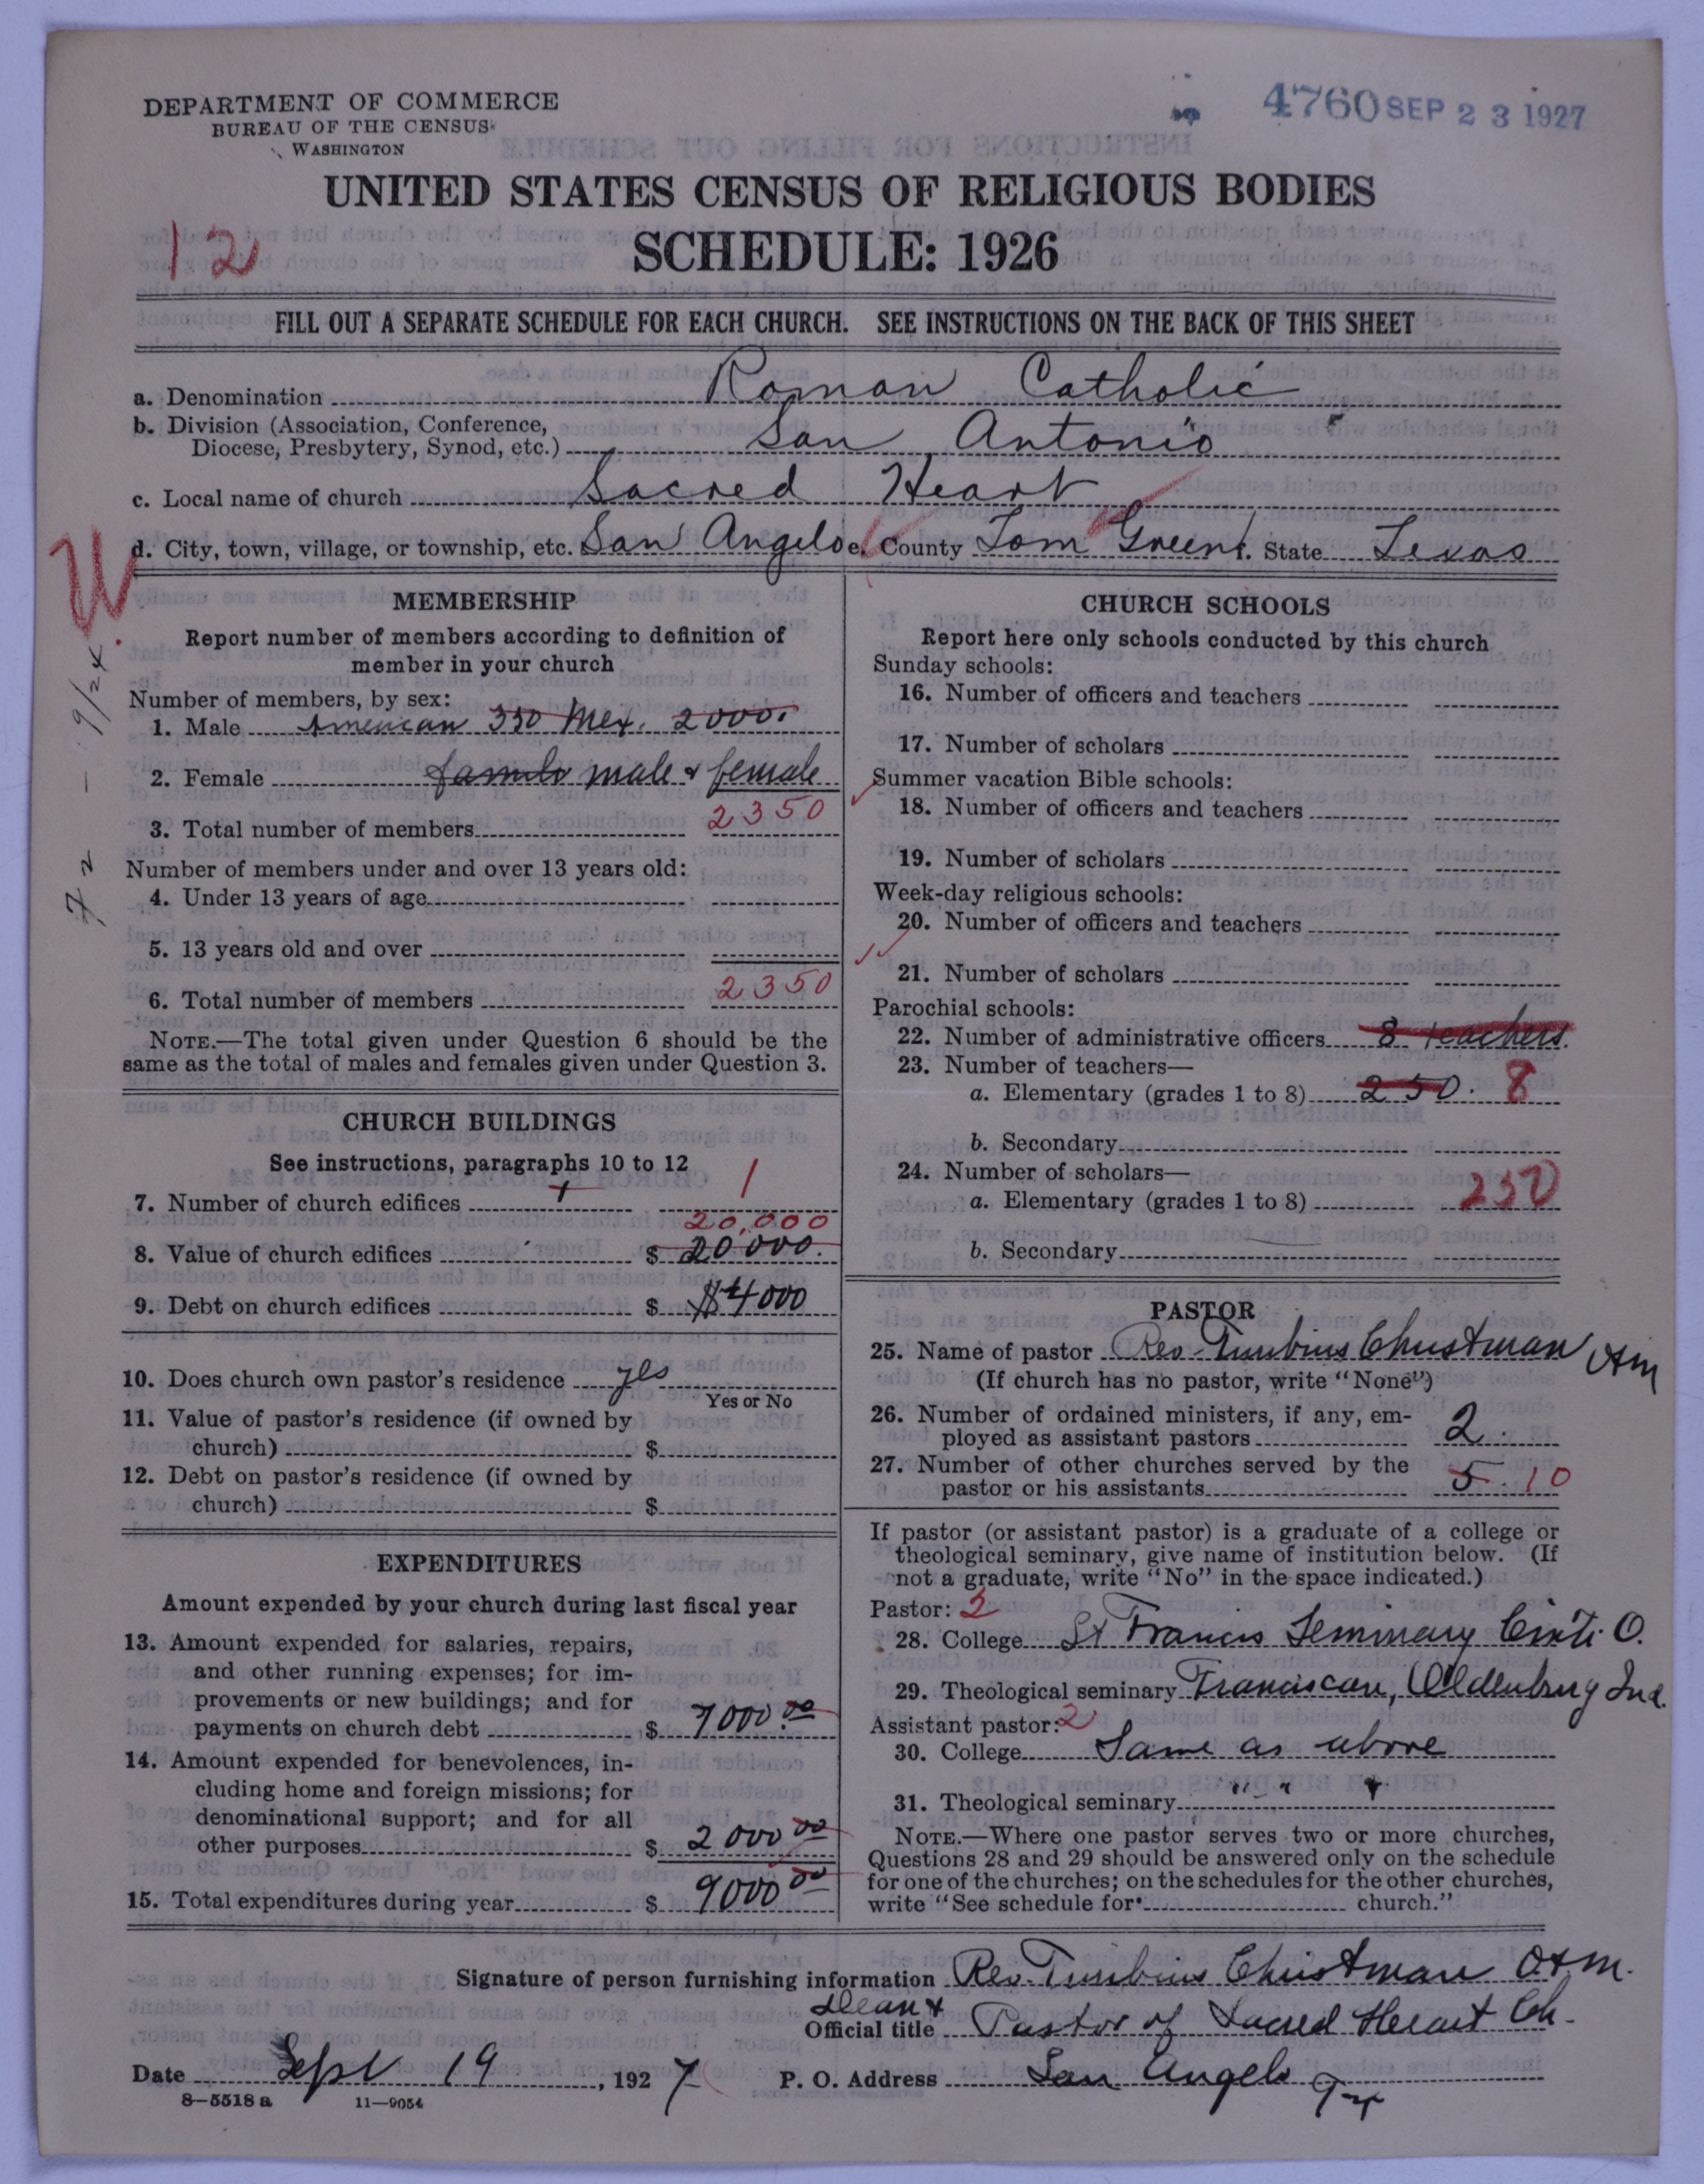 DEPARTMENT OF COMMERCE
BUREAU OF THE CENSUS
WASHINGTON
4760 SEP 23 1927
UNITED STATES CENSUS OF RELIGIOUS BODIES
12
SCHEDULE: 1926
FILL OUT A SEPARATE SCHEDULE FOR EACH CHURCH. SEE INSTRUCTIONS ON THE BACK OF THIS SHEET
a. Denomination Roman Catholic
b. Division (Association, Conference,
Diocese, Presbytery, Synod, etc.) San Antonio
c. Local name of church Sacred Heart
d. City, town, village, or township, etc. San Angelo e. County Tom Green f. State Texas
MEMBERSHIP
Report number of members according to definition of
member in your church
Number of members, by sex:
1. Male American 350 Mex. 2000.
2. Female male & female
3. Total number of members 2350
Number of members under and over 13 years old:
4. Under 13 years of age
5. 13 years old and over
6. Total number of members 2350
NOTE.—The total given under Question 6 should be the
same as the total of males and females given under Question 3.
72 - 9/24
CHURCH BUILDINGS
See instructions, paragraphs 10 to 12
7. Number of church edifices 1 1
20,000
8. Value of church edifices $ 20 000.
9. Debt on church edifices $ $4 000
10. Does church own pastor's residence yes
Yes or No
11. Value of pastor's residence (if owned by
church) $
12. Debt on pastor's residence (if owned by
church) $
EXPENDITURES
Amount expended by your church during last fiscal year
13. Amount expended for salaries, repairs,
and other running expenses; for im-
provements or new buildings; and for
payments on church debt $ 7000.00
14. Amount expended for benevolences, in-
cluding home and foreign missions; for
denominational support; and for all
other purposes $ 2000 00
15. Total expenditures during year $ 9000 00
CHURCH SCHOOLS
Report here only schools conducted by this church
Sunday schools:
16. Number of officers and teachers
17. Number of scholars
Summer vacation Bible schools:
18. Number of officers and teachers
19. Number of scholars
Week-day religious schools:
20. Number of officers and teachers
21. Number of scholars
Parochial schools:
22. Number of administrative officers 8 teachers.
23. Number of teachers—
a. Elementary (grades 1 to 8) 250. 8
b. Secondary
24. Number of scholars—
a. Elementary (grades 1 to 8) 250
b. Secondary
PASTOR
25. Name of pastor Rev. Turibius Christman OFM
(If church has no pastor, write "None")
26. Number of ordained ministers, if any, em-
ployed as assistant pastors 2.
27. Number of other churches served by the
pastor or his assistants 5. 10
If pastor (or assistant pastor) is a graduate of a college or
theological seminary, give name of institution below. (If
not a graduate, write "No" in the space indicated.)
Pastor: 2
28. College St Francis Seminary Cinti. O.
29. Theological seminary Franciscan, Oldenburg Ind.
Assistant pastor: 2
30. College Same as above
31. Theological seminary " " "
NOTE.—Where one pastor serves two or more churches,
Questions 28 and 29 should be answered only on the schedule
for one of the churches; on the schedules for the other churches,
write "See schedule for church."
Signature of person furnishing information Rev. Turibius Christman OFM.
Dean &
Official title Pastor of Sacred Heart Ch.
Date Sept 19, 1927 P. O. Address San Angelo Tex
8—5518 a 11—9054